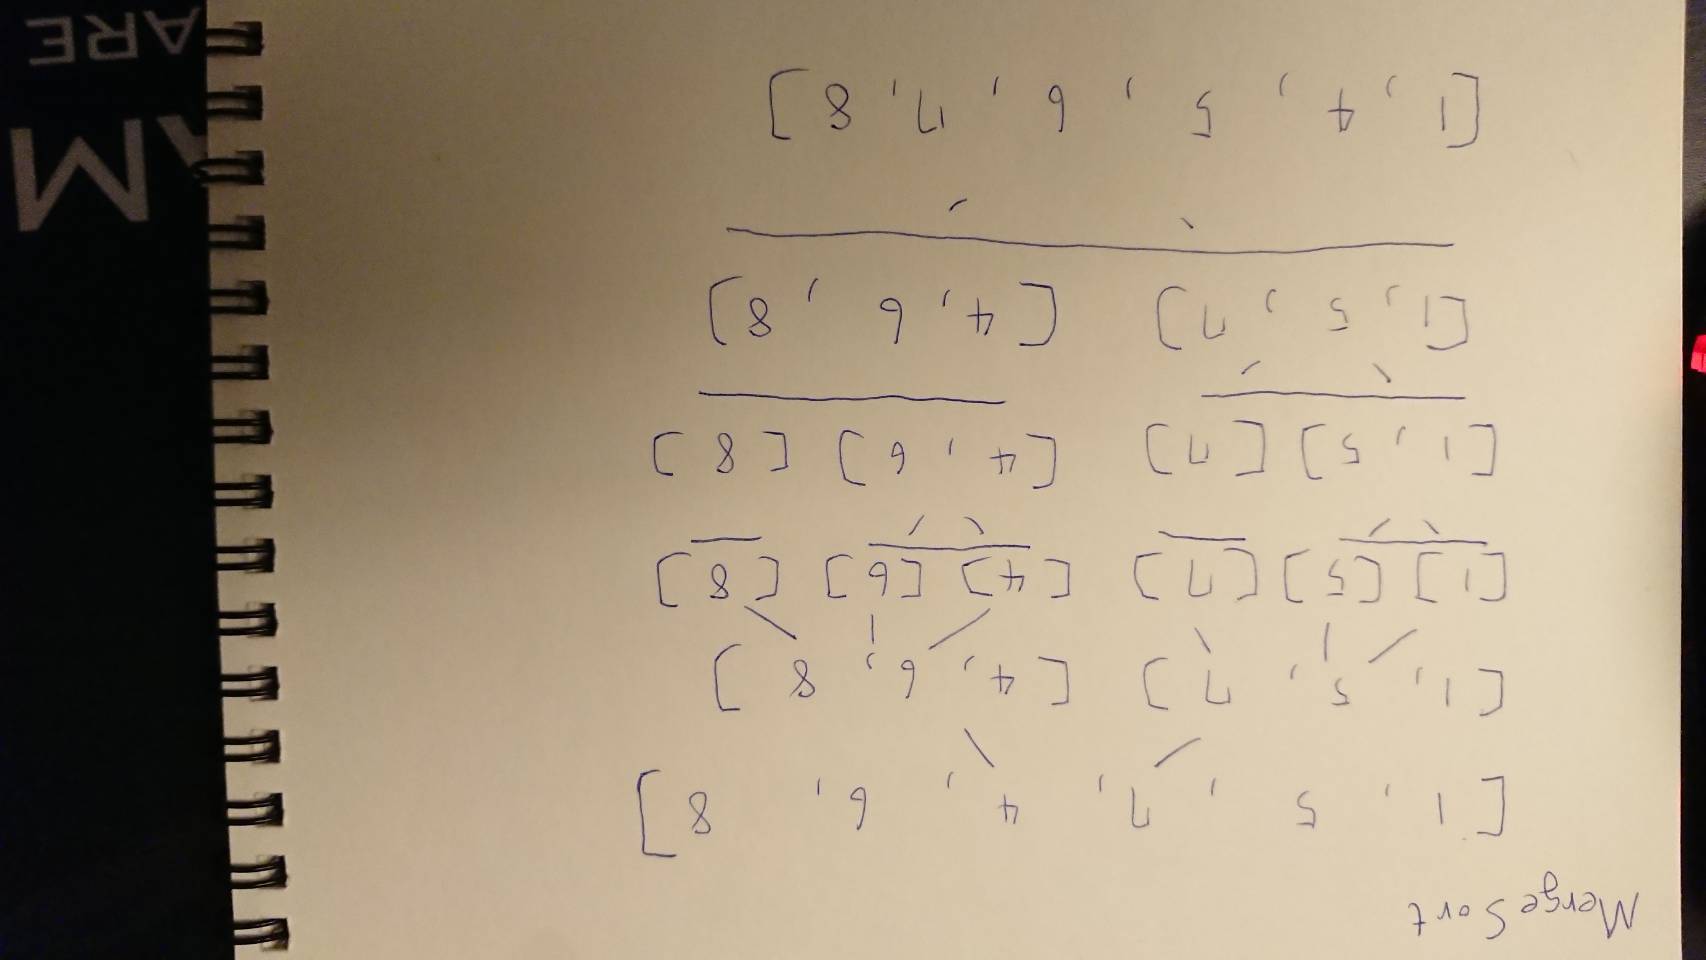 Merge Sort
[1, 5, 7, 4, 6, 8]
[1, 5, 7] [4, 6, 8]
[1] [5] [7] [4] [6] [8]
[1, 5] [7] [4, 6] [8]
[1, 5, 7] [4, 6, 8]
[1, 4, 5, 6, 7, 8]
AM
ARE